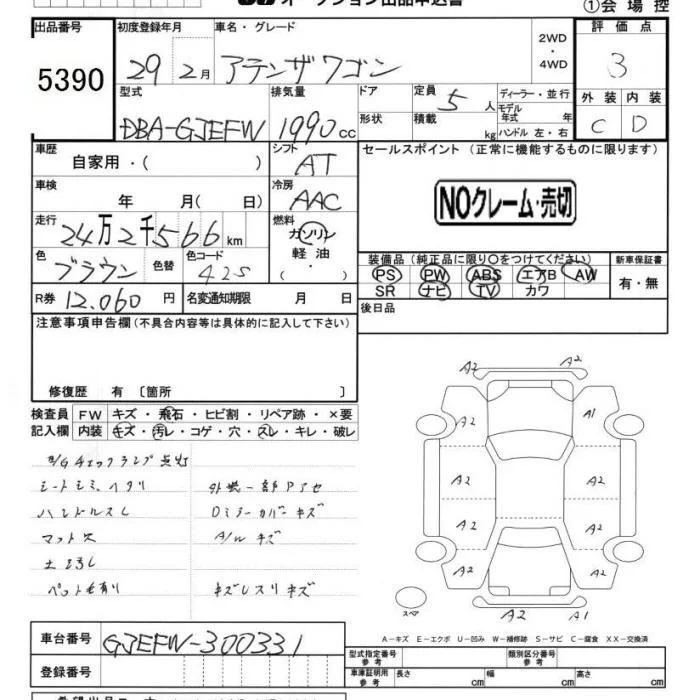 オークション出品申込書
①会場控
出品番号 初度登録年月 車名・グレード 評価点
5390
29年2月 アテンザワゴン 2WD・4WD 3
型式 排気量 ドア 定員 ディーラー・並行 外装 内装
DBA-GJEFW 1990cc 5人 モデル年式 年 C D
形状 積載 kg ハンドル 左・右
車歴 シフト セールスポイント (正常に機能するものに限ります)
自家用・( ) AT
車検 冷房
年 月( 日) AAC NOクレーム・売切
走行 燃料
24万2千566km ガソリン
軽油
・
色 色替 色コード 装備品(純正品に限り○をつけてください) 新車保証書
ブラウン 42S PS PW ABS エアB AW 有・無
SR ナビ TV カワ
R券 12,060円 名変通知期限 月 日 後日品
注意事項申告欄(不具合内容等は具体的に記入して下さい)
修復歴 有〔箇所 〕
検査員 FW キズ・飛石・ヒビ割・リペア跡・×要
記入欄 内装 キズ・汚レ・コゲ・穴・スレ・キレ・破レ
チェックランプ点灯
シートシミ、ヘタリ 外装一部Pアセ
ハンドルスレ Dミラーカバーキズ
マット欠 A/Wキズ
キズレスリキズ
A2 A2
A2 A1
A2 A2
A2 A2
A2 A2
スペア A2 A1
A-キズ E-エクボ U-凹み W-補修跡 S-サビ C-腐食 XX-交換済
車台番号 GJEFW-300331
登録番号
型式指定番号 参考 類別区分番号 参考
車庫証明用 参考 長さ cm 幅 cm 高さ cm